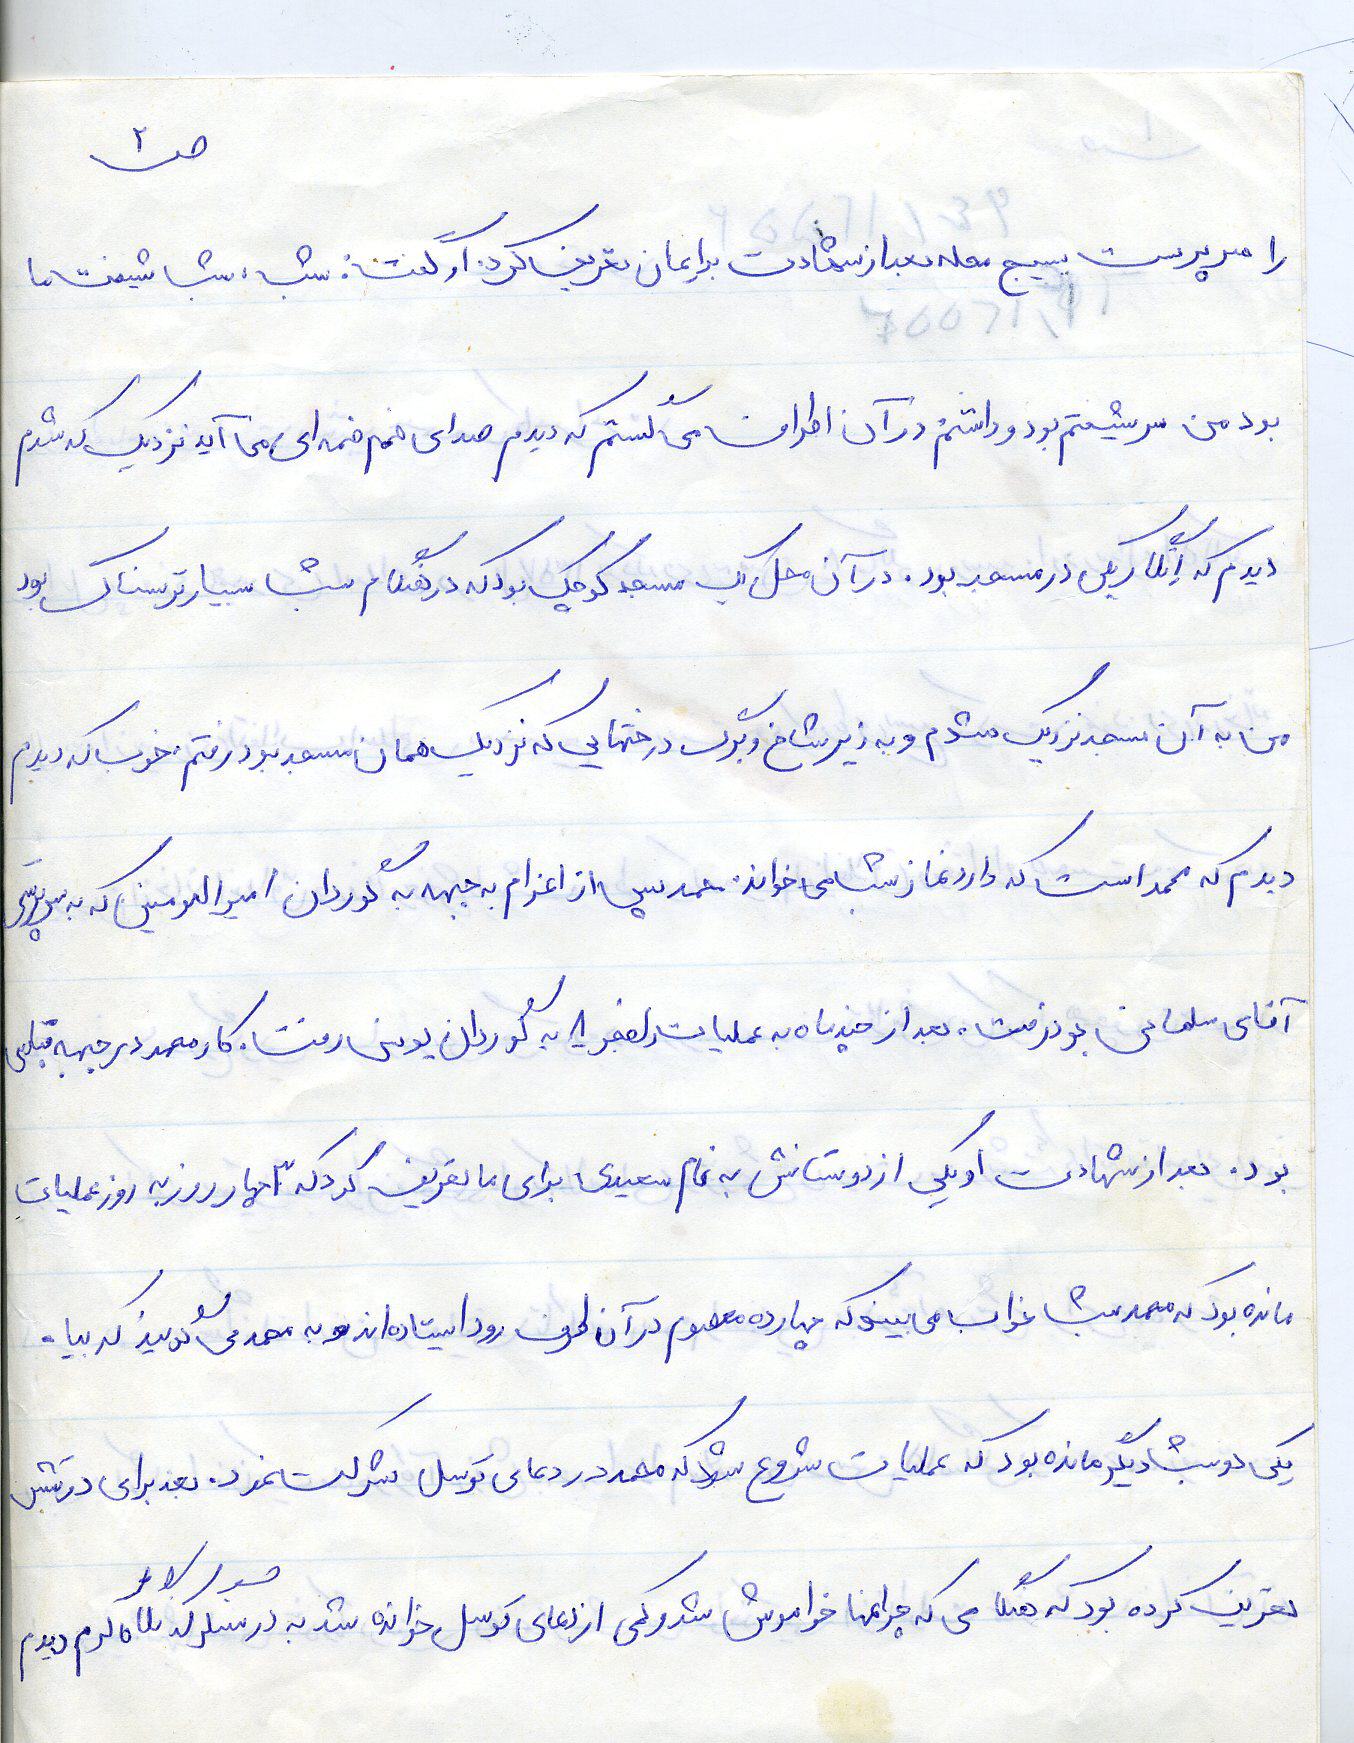 ص ۲
را سرپرست بسیج محله بعد از شهادت برایمان تعریف کرد. او گفت: شب، شب شیفت ما
بود من سر شیفتم بود و داشتم در آن اطراف می گشتم که دیدم صدای همهمه ای می آید نزدیک که شدم
دیدم که انگار یکی در مسجد بود. در آن محل یک مسجد کوچک بود که در هنگام شب بسیار ترسناک بود
من به آن مسجد نزدیک شدم و به زیر شاخ و برگ درختهایی که نزدیک همان مسجد بود رفتم. خوب که دیدم
دیدم که محمد است که دارد نماز شب می خواند. محمد پس از اعزام به جبهه به گوردان امیرالمومنین که به سرپرستی
آقای سلمانی بود رفت. بعد از چند ماه به عملیات والفجر ۸ به گوردان یونس رفت. کار محمد در جبهه
بود. بعد از شهادت او یکی از دوستانش به نام سعیدی برای ما تعریف کرد که ۳ چهار روز به روز عملیات
مانده بود که محمد شب خواب می بیند که چهارده معصوم در آن طرف رود ایستاده اند و به محمد می گویند که بیا.
یکی دو شب دیگر مانده بود که عملیات شروع شود که محمد در دعای توسل شرکت نمود. بعد برای
تعریف کرده بود که هنگامی که چراغها خاموش شد و کمی از دعای توسل خوانده شد به در سنگر که نگاه کردم دیدم